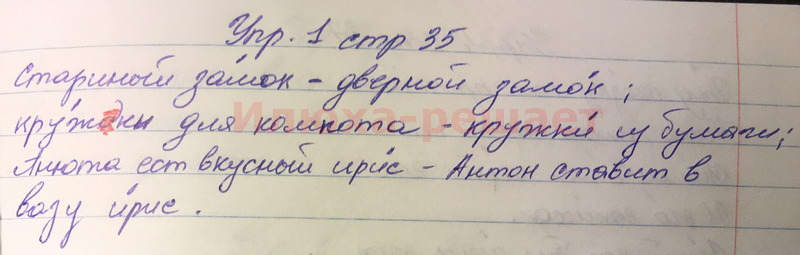 Упр. 1 стр 35
Стариный за́мок - дверной замо́к;
кру́жки для компота - кружки́ из бумаги;
Анюта ест вкусный ири́с - Антон ставит в
вазу и́рис.
Илюха-решает